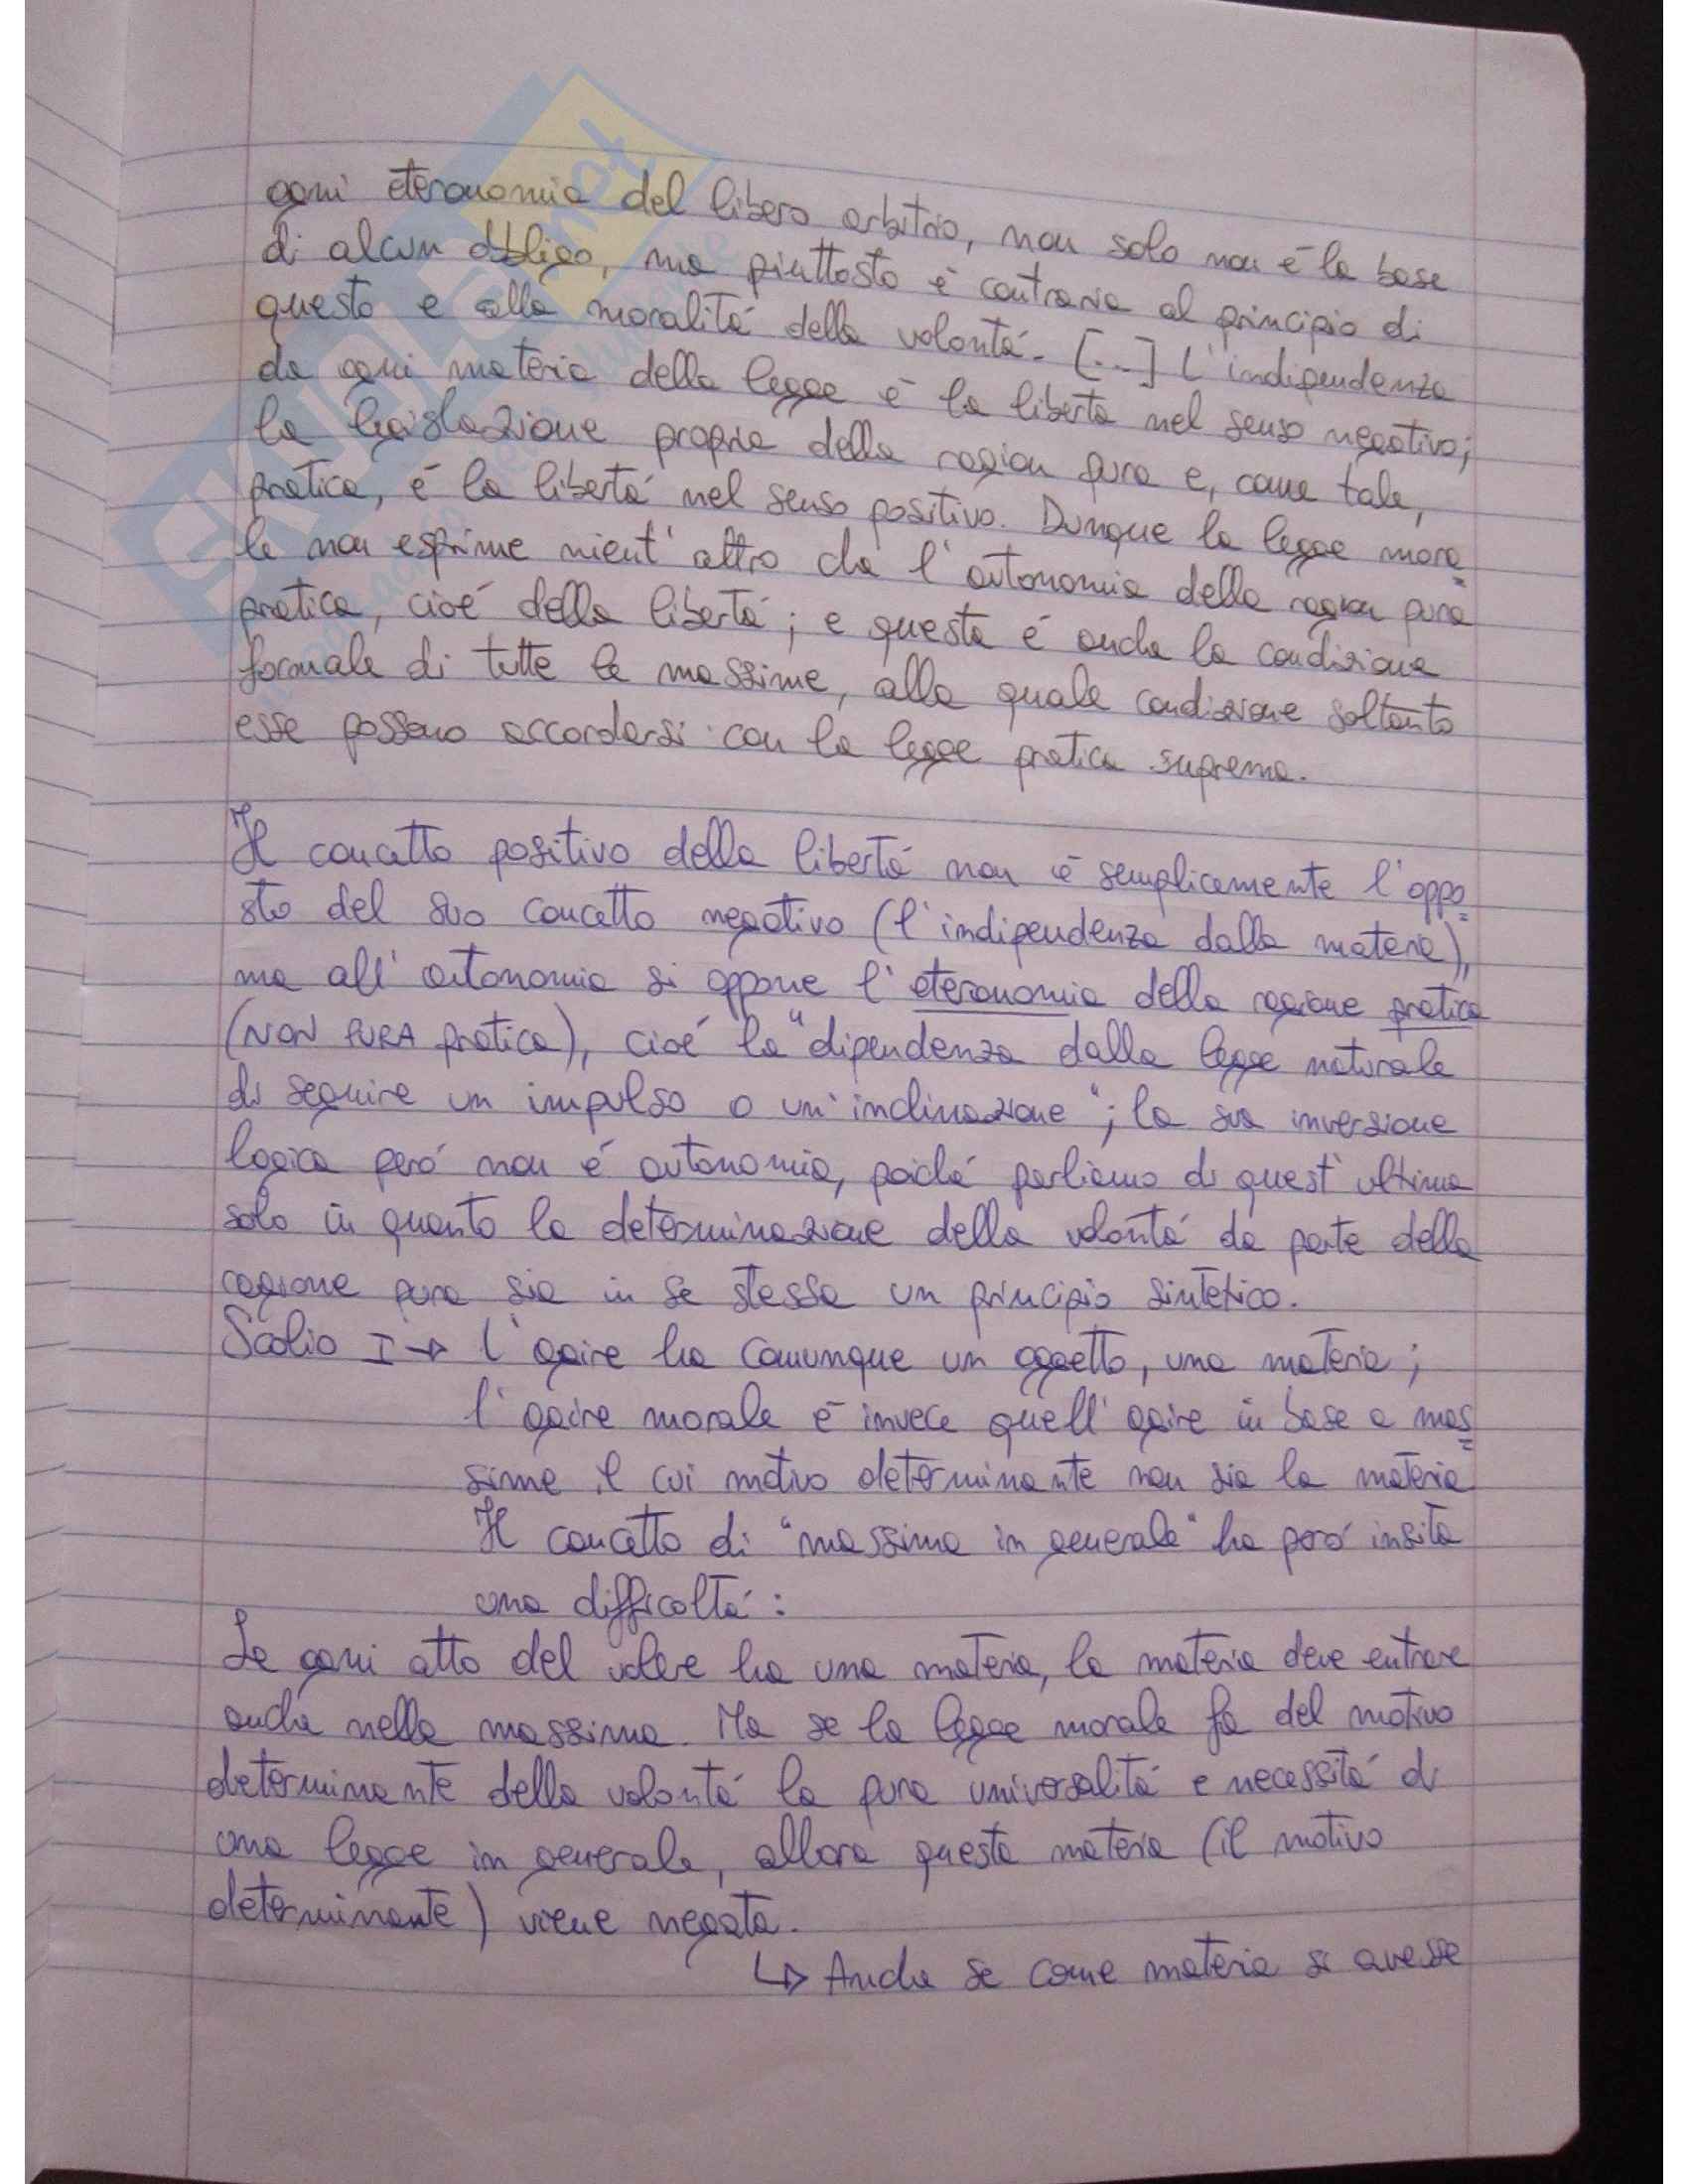 ogni eteronomia del libero arbitrio, non solo non è la base
di alcun obbligo, ma piuttosto è contraria al principio di
questo e alla moralità della volontà. [...] L'indipendenza
da ogni materia della legge è la libertà nel senso negativo;
la legislazione propria della ragion pura e, come tale,
pratica, é la libertá nel senso positivo. Dunque la legge mora=
le non esprime nient'altro che l'autonomia della ragion pura
pratica, cioé della libertá; e questa é anche la condizione
formale di tutte le massime, alla quale condizione soltanto
esse possono accordarsi con la legge pratica suprema.
Il concetto positivo della libertá non é semplicemente l'oppo=
sto del suo concetto negativo (l'indipendenza dalla materia),
ma all'autonomia si oppone l'eteronomia della ragione pratica
(NON PURA pratica), cioé la "dipendenza dalla legge naturale
di seguire un impulso o un'inclinazione"; la sua inversione
logica peró non é autonomia, poiché parliamo di quest'ultima
solo in quanto la determinazione della volontá da parte della
ragione pura sia in se stessa un principio sintetico.
Scolio I → L'agire ha comunque un oggetto, una materia;
l'agire morale é invece quell'agire in base a mas=
sime il cui motivo determinante non sia la materia
Il concetto di "massima in generale" ha peró insita
una difficoltá:
Se ogni atto del volere ha una materia, la materia deve entrare
anche nella massima. Ma se la legge morale fa del motivo
determinante della volontá la pura universalitá e necessitá di
una legge in generale, allora questa materia (il motivo
determinante) viene negata.
↳ Anche se come materia si avesse
SKUOLA.net